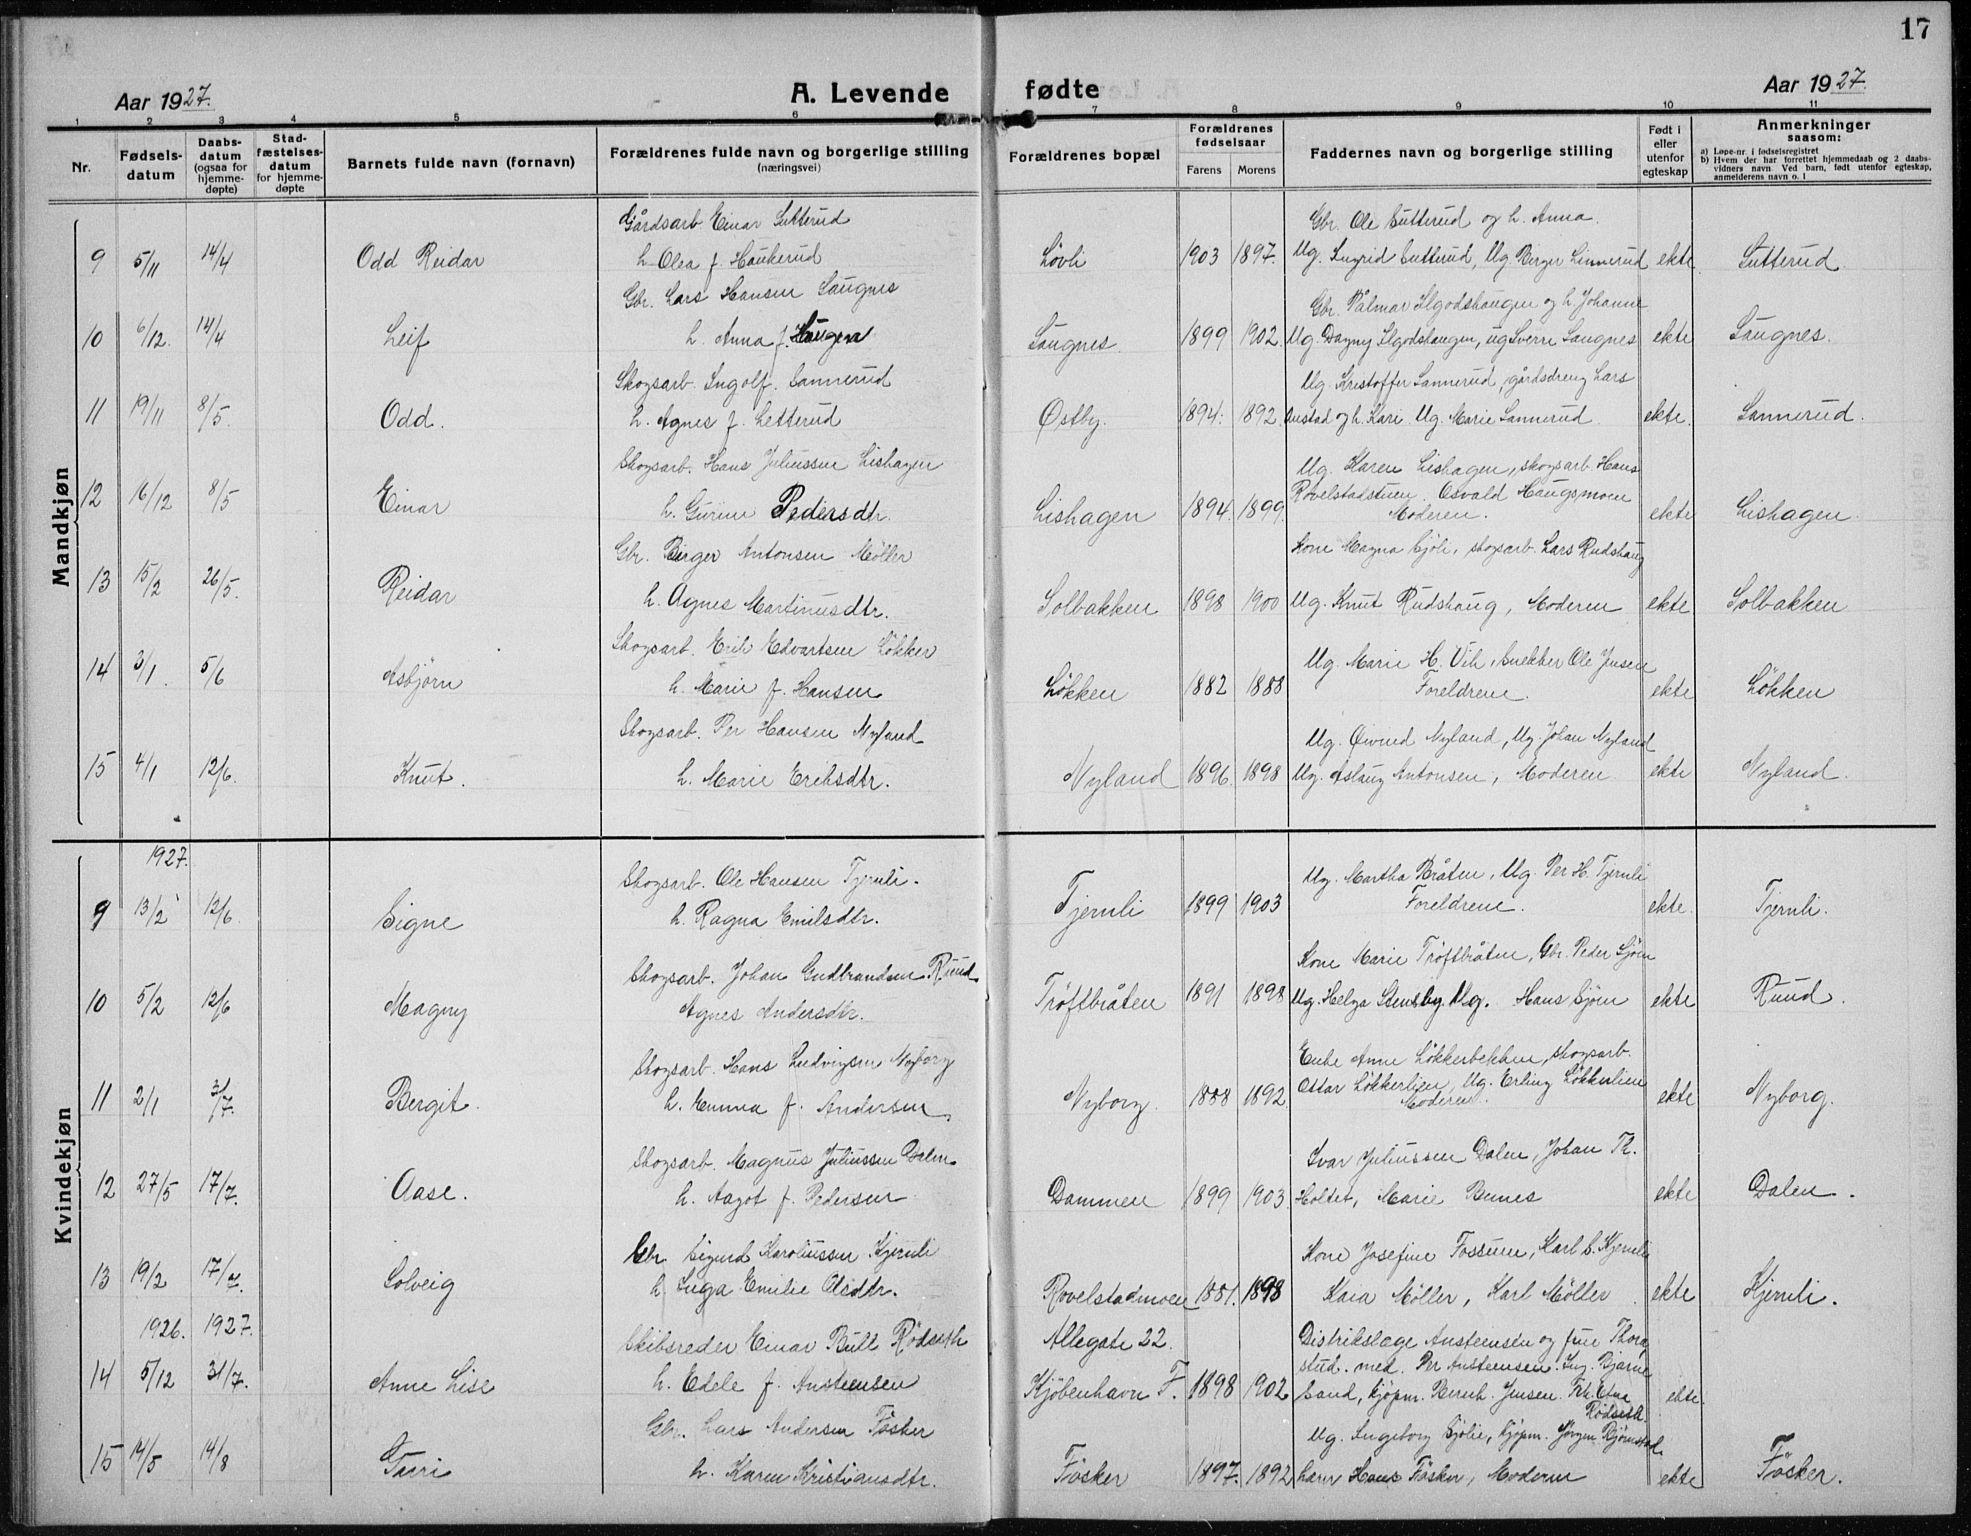 17
Aar 1927.
A. Levende
fødte
Aar 1927.
1 2 3 4 5 6 7 8 9 10 11
Nr.
Fødsels-
datum
Daabs-
datum
(ogsaa for
hjemme-
døpte)
Stad-
fæstelses-
datum
for hjemme-
døpte
Barnets fulde navn (fornavn)
Forældrenes fulde navn og borgerlige stilling
(næringsvei)
Forældrenes bopæl
Forældrenes
fødselsaar
Farens Morens
Faddernes navn og borgerlige stilling
Født i
eller
utenfor
egteskap
Anmerkninger
saasom:
a) Løpe-nr. i fødselsregistret
b) Hvem der har forrettet hjemmedaab og 2 daabs-
vidners navn. Ved barn, født utenfor egteskap,
anmelderens navn o. l
Mandkjøn
Gårdsarb Einar Sutterud
Gbr. Ole Sutterud og h. Anna
9 5/11 14/4 Odd Reidar h Olea f. Haukerud Løvli 1903 1897. Ug. Ingrid Sutterud, Ug. Birger Linnerud ekte Sutterud.
Gbr. Lars Hansen Saugnes
Gbr. Pålmar Ilgodshaugen og h. Johanne
10 6/12. 14/4 Leif h. Anna f. Haugen Saugnes 1899 1902. Ug. Dagny Ilgodshaugen, ug Sverre Saugnes ekte Saugnes.
Skogsarb. Ingolf. Sannerud
Ug. Kristoffer Sannerud, gårdsdreng Lars
11 19/11 8/5. Odd. h. Agnes f. Letterud Østby. 1894. 1892. Austad og h. Kari. Ug. Marie Sannerud ekte. Sannerud.
Skogsarb. Hans Juliussen Lishagen
Ug. Karen Lishagen, skogsarb. Hans
12 16/12 8/5 Einar h. Gurine Pedersdtr. Lishagen 1894. 1899. Rovelstadstuen. Osvald Haugsmoen
Moderen. ekte Lishagen.
Gbr. Birger Antonsen Møller
Kone Magna Sjöli, skogsarb. Lars Rudshaug
13 15/2 26/5. Reidar h. Agnes Martinusdtr. Solbakken 1898 1900 Ug. Knut Rudshaug, Moderen ekte Solbakken
Skogsarb. Erik Edvartsen Løkken
Ug. Marie H. Vik, Snekker Ole Jensen
14 3/1. 5/6 Asbjørn h. Marie f. Hansen Løkken 1882 1888 Foreldrene. ekte Løkken
Skogsarb. Per Hansen Nyland
Ug. Øivind Nyland, Ug. Johan Nyland
15 4/1 12/6. Knut. h. Marie Eriksdtr. Nyland 1896. 1898 Ug. Aslaug Antonsen, Moderen ekte Nyland.
Kvindekjøn
1927.
Skogsarb. Ole Hansen Tjernli.
Ug. Martha Bråten, Ug. Per H. Tjernli
9 13/2 12/6. Signe h. Ragna Emilsdtr. Tjernli 1899 1903 Foreldrene. ekte. Tjernli.
Skogsarb. Johan Gudbrandsen Ruud
Kone Marie Trøftbråten, Gbr. Peder Sjøen
10 5/2 12/6 Magny Agnes Andersdtr. Trøftbråten 1891 1898 Ug. Helga Stensby. Ug. Hans Sjøen ekte Ruud.
Skogsarb. Hans Ludvigsen Nyborg
Enke Anne Løkkerbekken, skogsarb.
11 2/1 3/7. Bergit. h. Emma f. Andersen. Nyborg. 1888 1892. Ottar Løkkerlien, Ug. Erling Løkkerlien
Moderen. ekte Nyborg.
Skogsarb. Magnus Juliussen Dalen.
Ivar Juliussen Dalen, Johan Th.
12 27/5 17/7. Aase. h. Aagot f. Pedersen Dammen 1899 1903. Holtet, Marie Bumes ekte Dalen.
Gbr Sigurd Karoliussen Kjernli
Kone Josefine Fossum, Karl S. Kjernli
13 19/2 17/7. Solveig h. Inga Emilie Olsdtr. Rovelstadmoen 1881. 1898 Kaia Møller, Karl Møller. ekte Kjernli.
1926. 1927.
Skibsreder Einar Bull Rødseth Allegate 22. Distrikslæge Austeensen og frue Thora
14 5/12 31/7. Anne Lise h. Edele f. Austeensen Kjøbenhavn F. 1898 1902 stud. med. Per Austeensen. Ing. Bjarne
Sand, kjøpm. Bernh. Jensen. Frk. Elna
Rødseth. ekte.
Gbr. Lars Andersen Føsker
Ug. Ingeborg Sjølie, kjøpm. Jørgen Bjørnstad
15 14/5 14/8 Turi h. Karen Kristiansdtr. Føsker 1897. 1892 Lærer Hans Føsker, Moderen ekte Føsker.